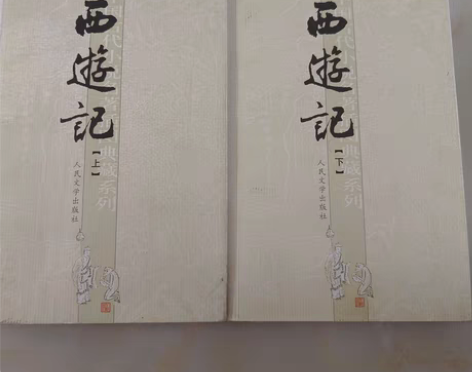 西遊記
【上】
人民文学出版社
典藏系列
西遊記
【下】
人民文学出版社
典藏系列